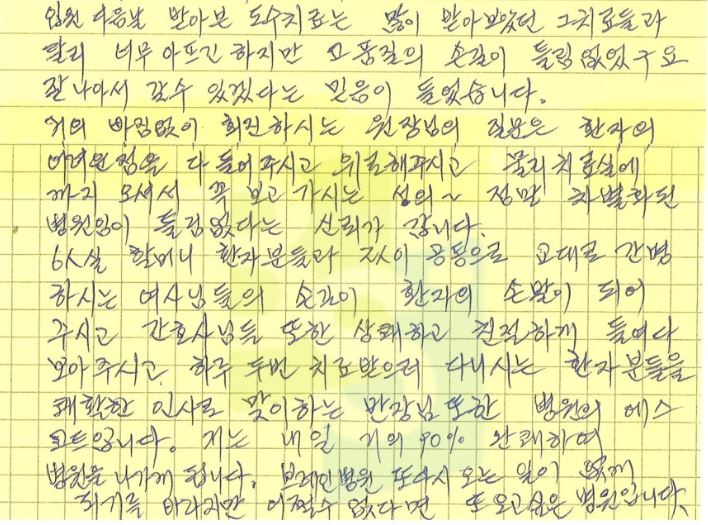 입원 다음날 받아본 도수치료는 많이 받아보았던 그치료들과
달리 너무 아프긴 하지만 고품질의 손길이 틀림 없었구요
잘 나아서 갈수 있겠다는 믿음이 들었습니다.
거의 빠짐없이 회진하시는 원장님의 질문은 환자의
어려운점을 다 들어주시고 위로해주시고 물리치료실에
까지 오셔서 꼭 보고 가시는 성의~ 정말 차별화된
병원임이 틀림없다는 신뢰가 갑니다.
6인실 할머니 환자분들과 같이 공동으로 교대로 간병
하시는 여사님들의 손길이 환자의 손발이 되어
주시고 간호사님들 또한 상쾌하고 친절하게 들여다
보아주시고, 하루 두번 치료받으러 다니시는 환자분들을
쾌활한 인사로 맞이하는 반장님 또한 병원의 에스
코트입니다. 저는 내일 거의 90% 완쾌하여
병원을 나가게 됩니다. 브레인병원 또다시 오는 일이 없게
되기를 바라지만 어쩔수 없다면 또 오고싶은 병원입니다.